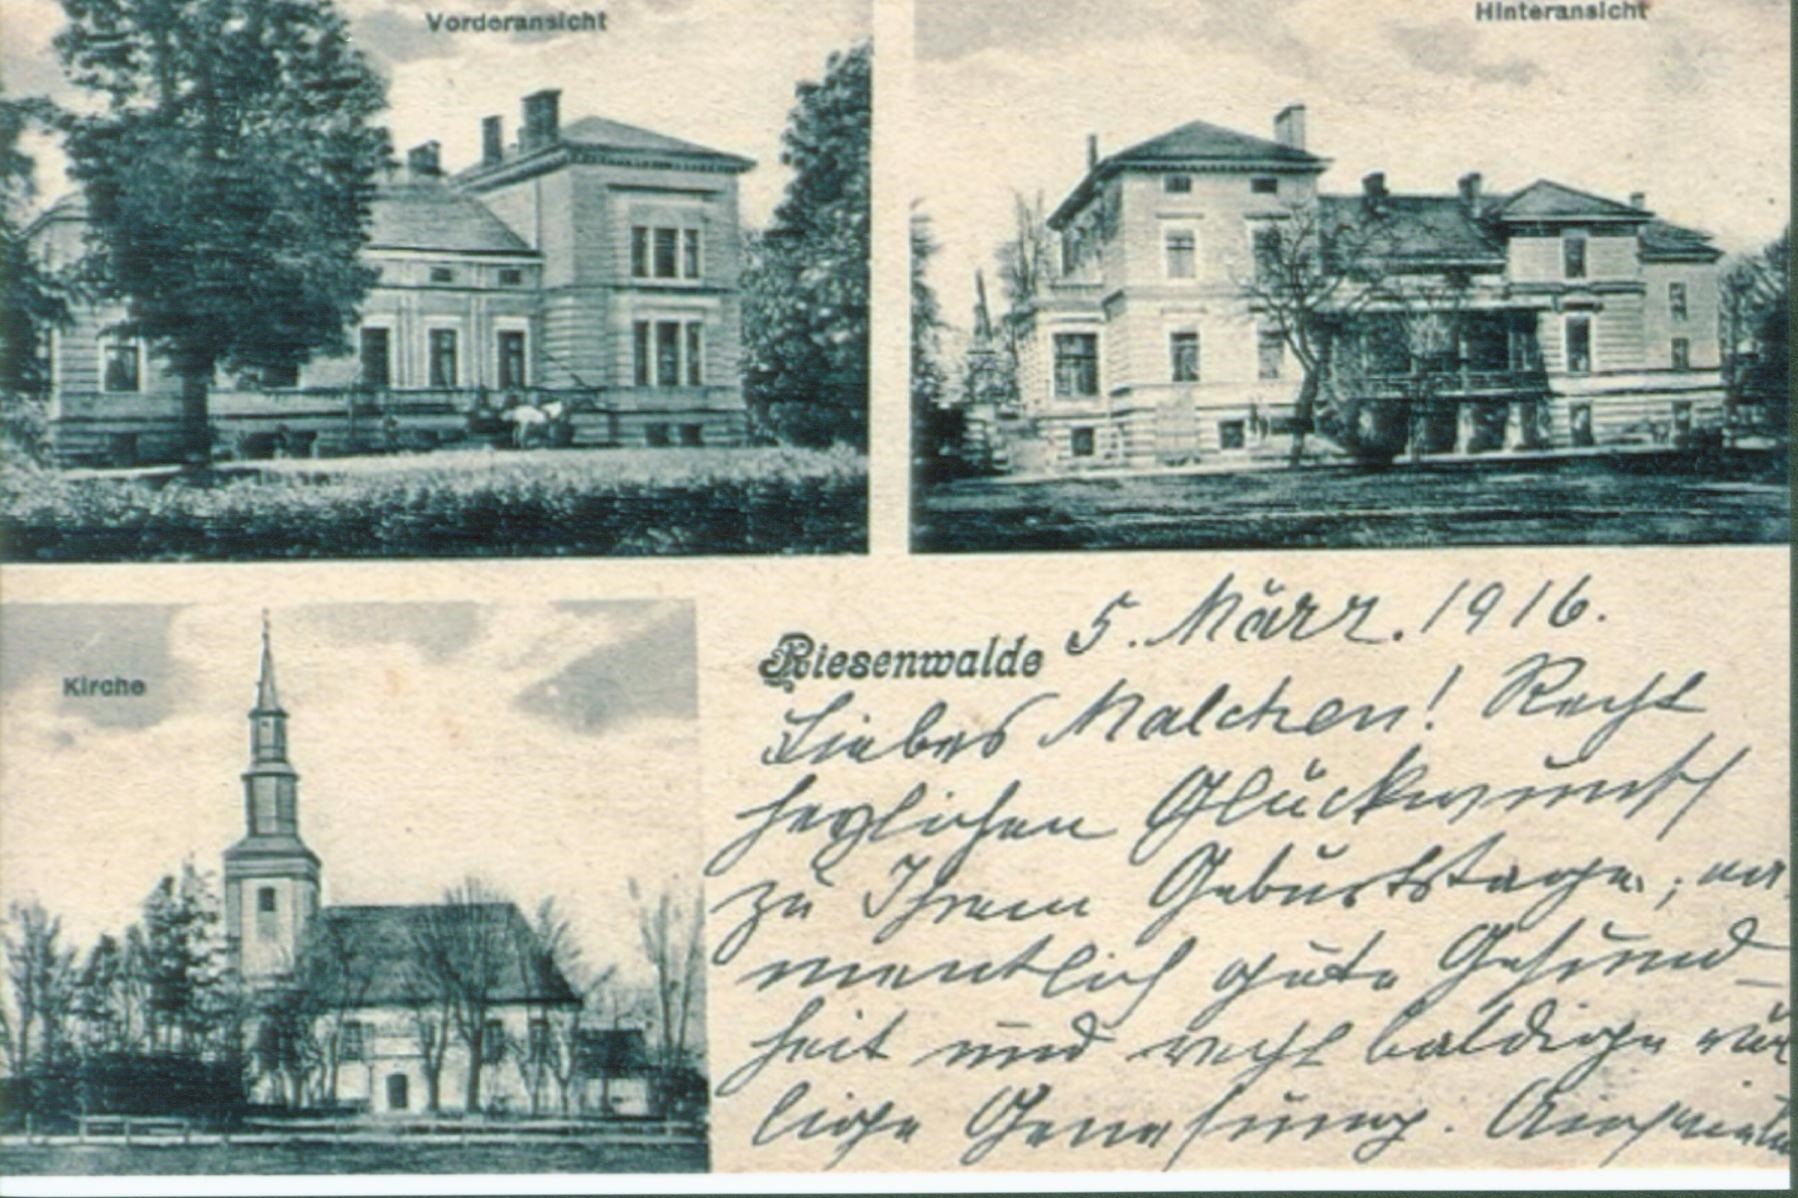 Vorderansicht
Hinteransicht
Kirche
Riesenwalde 5. März. 1916.
Liebes Malchen! Recht
herzlichen Glückwunsch
zu Ihrem Geburtstage; na
mentlich gute Gesund-
heit und recht baldige völ
lige Genesung. Auch